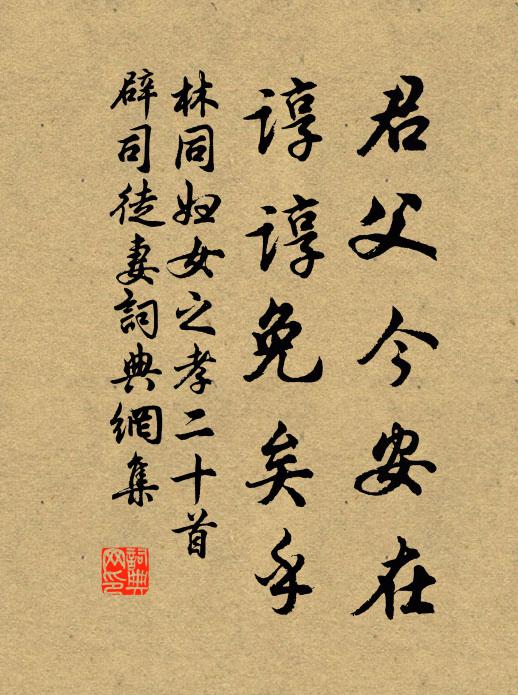 君父今安在
諄諄免矣乎
林同妇女之孝二十首
辟司徒妻詞典網集
詞典網印